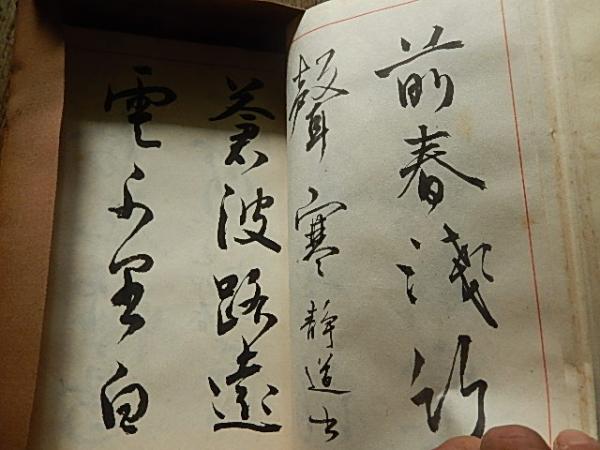 前春淺竹
聲寒 静道書
蒼波路遠
雲千里白